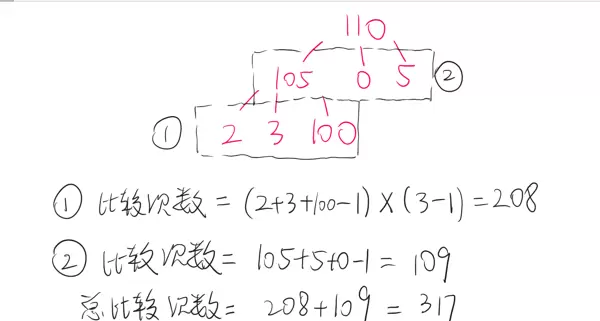 110
105 0 5 ②
① 2 3 100
① 比较次数 = (2+3+100-1) × (3-1) = 208
② 比较次数 = 105+5+0-1 = 109
总比较次数 = 208+109 = 317